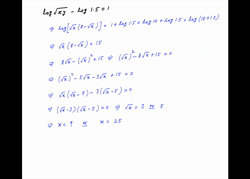 log√xy - log 1.5 = 1
⇒ log[√x (8-√x)] = 1 + log 1.5 = log 10 + log 1.5 = log (10×1.5)
⇒ √x (8-√x) = 15
⇒ 8√x - (√x)² = 15 ⇒ (√x)² - 8√x + 15 = 0
⇒ (√x)² - 5√x - 3√x + 15 = 0
⇒ √x (√x - 5) - 3(√x - 5) = 0
⇒ (√x - 3)(√x - 5) = 0 ⇒ √x = 3 or 5
⇒ x = 9 or x = 25